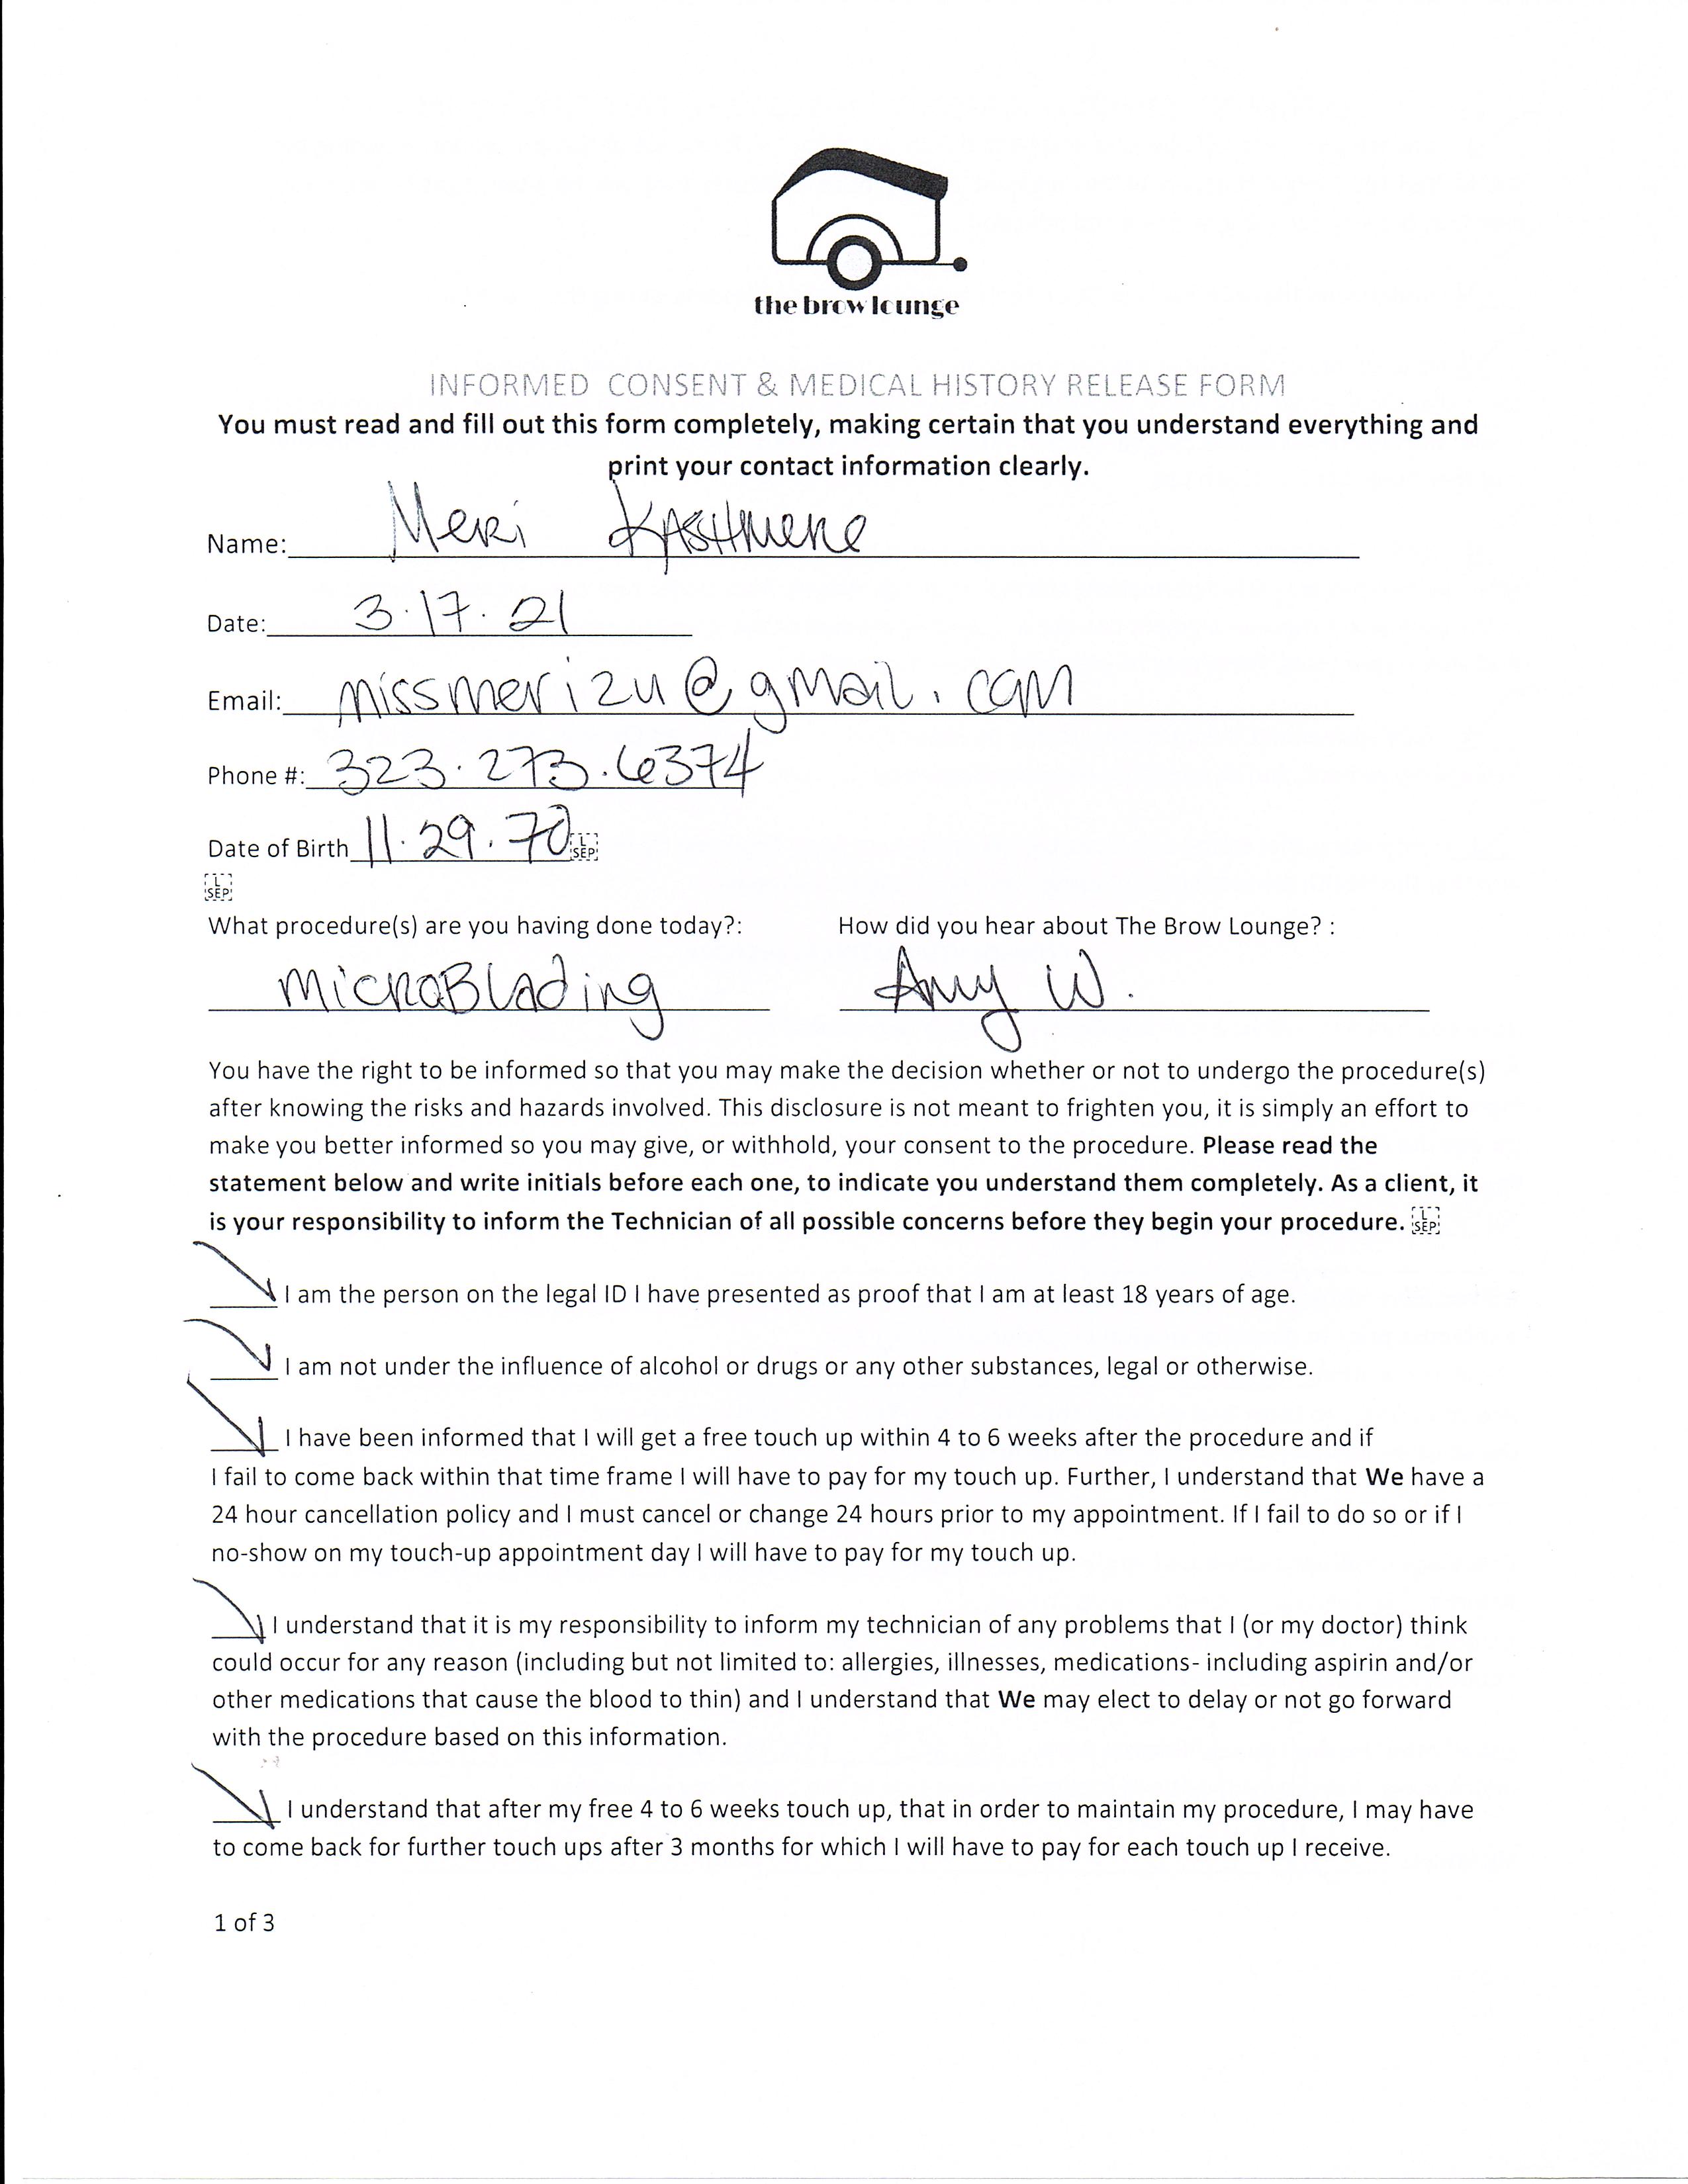 the brow lounge
INFORMED CONSENT & MEDICAL HISTORY RELEASE FORM
You must read and fill out this form completely, making certain that you understand everything and
print your contact information clearly.
Name: Meri
Date: 3.17.21
Email: missmerizu@gmail.com
Phone #: 323.273.6374
Date of Birth 11.29.70 L SEP
L SEP
What procedure(s) are you having done today?: How did you hear about The Brow Lounge? :
MicroBlading Amy W.
You have the right to be informed so that you may make the decision whether or not to undergo the procedure(s)
after knowing the risks and hazards involved. This disclosure is not meant to frighten you, it is simply an effort to
make you better informed so you may give, or withhold, your consent to the procedure. Please read the
statement below and write initials before each one, to indicate you understand them completely. As a client, it
is your responsibility to inform the Technician of all possible concerns before they begin your procedure. L SEP
I am the person on the legal ID I have presented as proof that I am at least 18 years of age.
I am not under the influence of alcohol or drugs or any other substances, legal or otherwise.
I have been informed that I will get a free touch up within 4 to 6 weeks after the procedure and if
I fail to come back within that time frame I will have to pay for my touch up. Further, I understand that We have a
24 hour cancellation policy and I must cancel or change 24 hours prior to my appointment. If I fail to do so or if I
no-show on my touch-up appointment day I will have to pay for my touch up.
I understand that it is my responsibility to inform my technician of any problems that I (or my doctor) think
could occur for any reason (including but not limited to: allergies, illnesses, medications- including aspirin and/or
other medications that cause the blood to thin) and I understand that We may elect to delay or not go forward
with the procedure based on this information.
I understand that after my free 4 to 6 weeks touch up, that in order to maintain my procedure, I may have
to come back for further touch ups after 3 months for which I will have to pay for each touch up I receive.
1 of 3